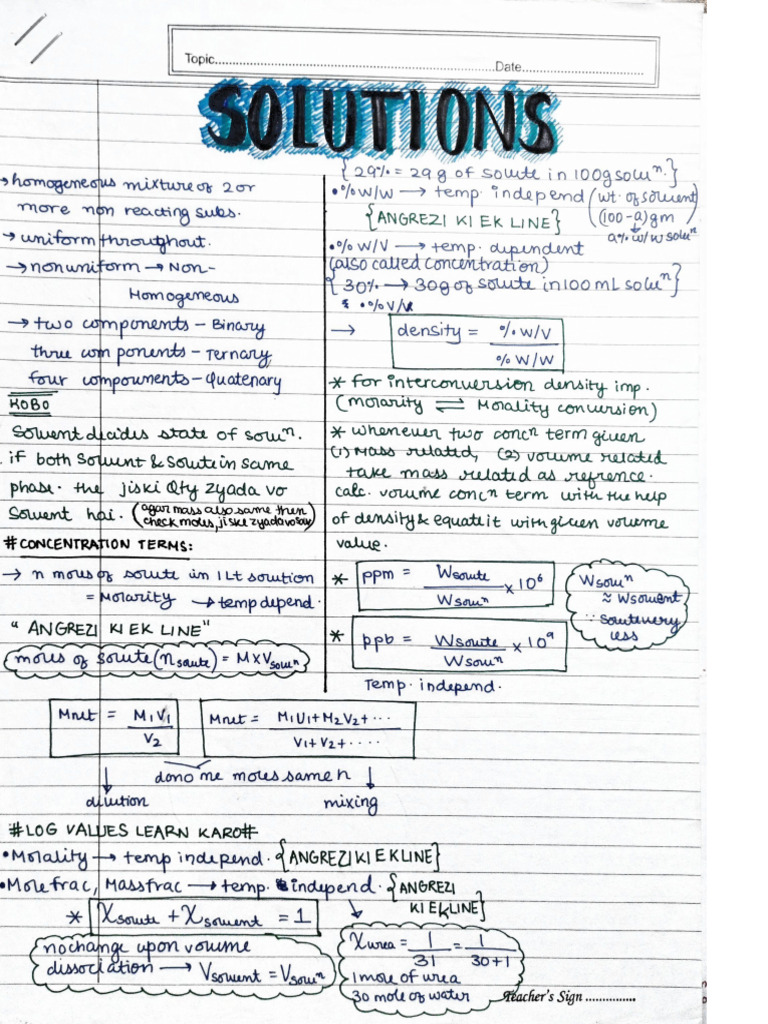 Topic.....................................................................Date..............................
SOLUTIONS
→ homogeneous mixture of 2 or
more non reacting subs.
→ uniform throughout.
→ nonuniform → Non-
Homogeneous
→ two components – Binary
three components – Ternary
four compounents – Quatenary
KOBO
Solvent decides state of soluⁿ.
if both Solvent & Solute in same
phase. the jiski Qty zyada vo
Solvent hai. (agar mass also same then
check moles, jiske zyada vo
# CONCENTRATION TERMS:
→ n moles of solute in 1Lt solution
= Molarity → temp depend.
"ANGREZI KI EK LINE"
moles of solute (n solute) = M×V soluⁿ
{29% = 29 g of solute in 100g soluⁿ.}
• % W/W → temp. independ (wt. of solvent
(100-a) gm
a% w/w soluⁿ
{ANGREZI KI EK LINE}
• % W/V → temp. dependent
(also called concentration)
{30% → 30g of solute in 100 mL soluⁿ}
• % V/V
→ density = % W/V / % W/W
* for interconversion density imp.
(molarity ⇌ Molality conversion)
* whenever two concⁿ term given
(1) Mass related, (2) volume related
take mass related as refrence.
calc. volume concⁿ term with the help
of density & equate it with given volume
value.
* ppm = W solute / W soluⁿ × 10⁶
W soluⁿ
≈ W solvent
∵ solute very
less
* ppb = W solute / W soluⁿ × 10⁹
Temp. independ.
Mnet = M₁V₁ / V₂
Mnet = M₁V₁+M₂V₂+··· / V₁+V₂+····
dono me moles same n
dilution
mixing
# LOG VALUES LEARN KARO #
• Molality → temp independ. {ANGREZI KI EK LINE}
• Mole frac, Mass frac → temp. independ. {ANGREZI
KI EK LINE}
* X solute + X solvent = 1
no change upon volume
dissociation → V solvent = V soluⁿ
X urea = 1/31 = 1/30+1
1 mole of urea
30 mole of water
Teacher's Sign ...............